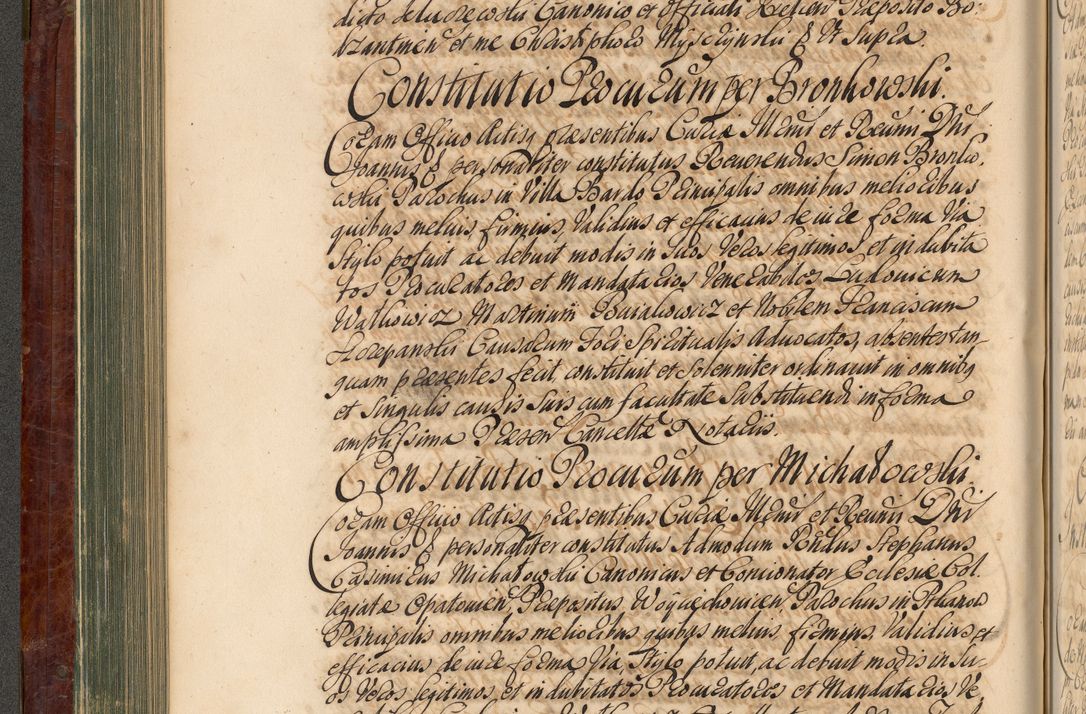 dicto Canonico et Officiali Præposito Bo-
dzantinen et me Christophoro Myszczynski & Ut Supra.
Constitutio Procurum per Bronkowski.
Coram Officio Actisq præsentibus Curiæ Illmi et Reumi Dni
Joannis & personaliter constitutus Reuerendus Simon Bronko-
wski Parochus in Villa Bardo Principalis omnibus melioribus
quibus melius, firmius, Validius et efficacius de iure forma Via
Stylo potuit ac debuit modis in Suos Veros legitimos et indubita
tos Procuratores et Mandatarios Venerabiles Ludouicum
Walkowicz Martinum Barakowicz et Noblem Franciscum
Szczepanski Causarum Fori Spiritualis Aduocatos, absentes tan-
quam præsentes fecit, constituit et Solenniter ordinauit in omnibq
et Singulis causis Suis cum facultate Substituendi in forma
amplissima Præsen Cancellæ Notariis.
Constitutio Procurum per Michałowski.
Coram Officio Actisq præsentibus Curiæ Illmi et Reumi Dni
Joannis & personaliter constitutus Admodum Rndus Stephanus
Casimirus Michałowski Canonicus et Concionator Ecclesiæ Col-
legiatæ Opatouien, Præpositus Woyciechouicen, Parochus in
Principalis omnibus melioribus quibus melius, firmius, Validius et
efficacius de iure forma Via Stylo potuit ac debuit modis in Su-
os Veros legitimos et indubitatos Procuratores et Mandatarios Ve-